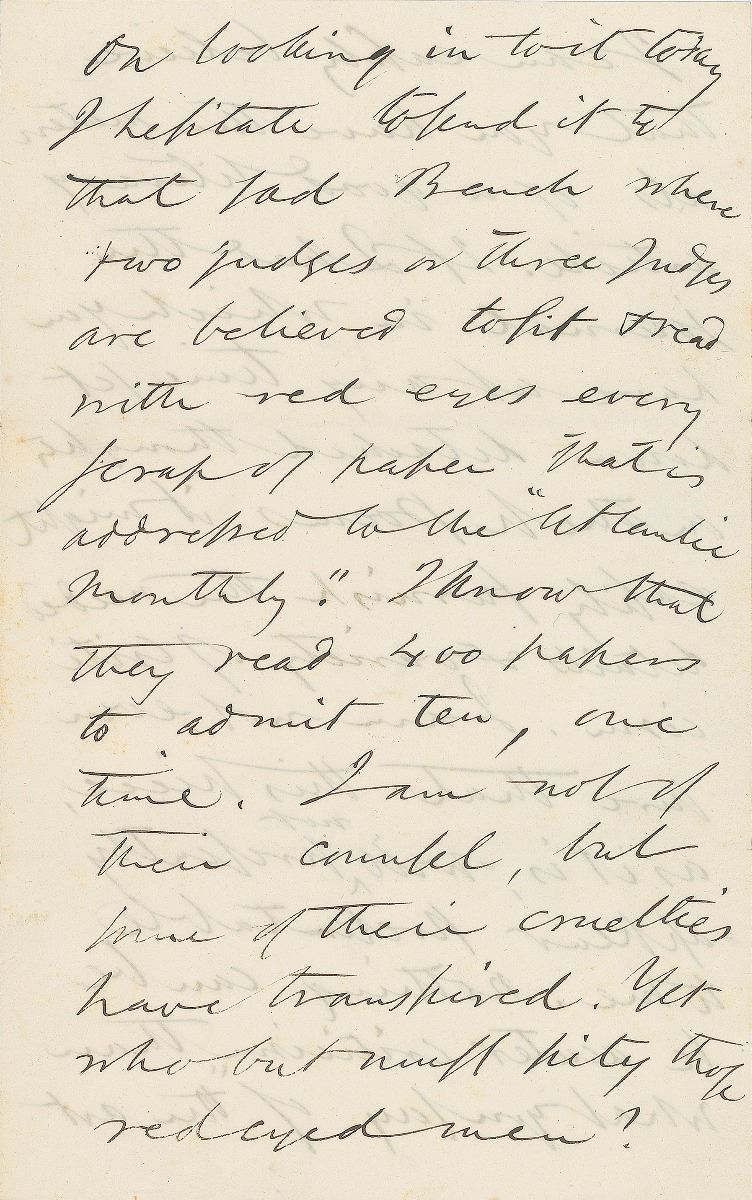 On looking in to it today
I hesitate to send it to
that sad Bench where
two judges or three judges
are believed to sit & read
with red eyes every
scrap of paper that is
addressed to the "Atlantic
Monthly." I know that
they read 400 papers
to admit ten, one
time. I am not of
their counsel, but
some of their cruelties
have transpired. Yet
who but must pity those
red eyed men?